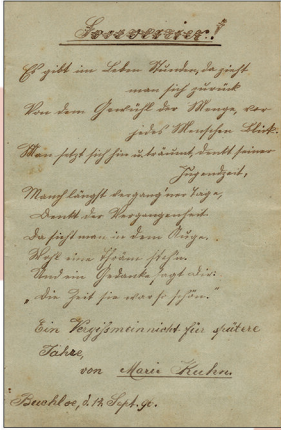 Souvenir!
Es gibt im Leben Stunden, da zieht
man sich zurück
Von dem Gewühl der Menge, vor
jedes Menschen Blick.
Man setzt sich hin u. träumt, denkt seiner
Jugendzeit,
Manch längst vergang'ner Tage,
Denkt der Vergangenheit.
Da sieht man in dem Auge.
Wohl eine Thräne stehn.
Und ein Gedanke sagt
„Die Zeit sie war so schön."
Ein Vergißmeinnicht für spätere
Jahre,
von Marie Kuhn.
Buchloe, d. Sept. 90.